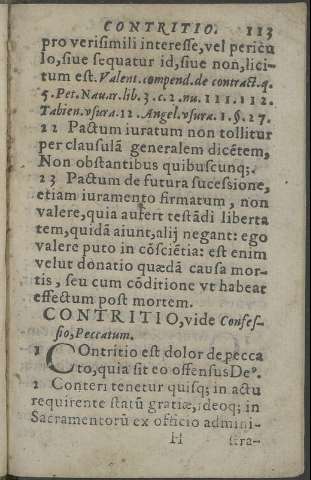 CONTRITIO. 113
pro verisimili interesse, vel pericu
lo, siue sequatur id, siue non, lici-
tum est. Valent. compend. de contract. q.
5. Pet. Nauar. lib. 3. c. 2. nu. 111. 112.
Tabien. vsura. 12. Angel. vsura. 1. §. 27.
22 Pactum iuratum non tollitur
per clausulā generalem dicētem,
Non obstantibus quibuscunq;.
23 Pactum de futura sucessione,
etiam iuramento firmatum, non
valere, quia aufert testādi liberta
tem, quidā aiunt, alij negant: ego
valere puto in cōsciētia: est enim
velut donatio quædā causa mor-
tis, seu cum cōditione vt habeat
effectum post mortem.
CONTRITIO, vide Confes-
sio, Peccatum.
1 COntritio est dolor de pecca
to, quia sit eo offensus Deꝰ.
2 Conteri tenetur quisq; in actu
requirente statū gratiæ, ideoq; in
Sacramentorū ex officio admini-
H stra-